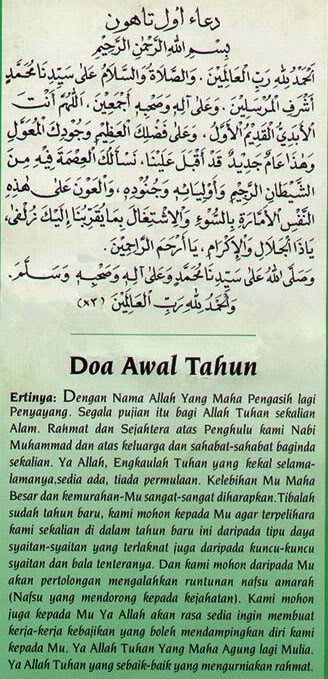 دعاء اول تاهون
بِسْمِ اللهِ الرَّحْمٰنِ الرَّحِيْمِ
اَلْحَمْدُ لِلّٰهِ رَبِّ الْعَالَمِيْنَ. وَالصَّلَاةُ وَالسَّلَامُ عَلَى سَيِّدِنَا مُحَمَّدٍ
أَشْرَفِ الْمُرْسَلِيْنَ. وَعَلَى آلِهِ وَصَحْبِهِ أَجْمَعِيْنَ. اَللّٰهُمَّ أَنْتَ
الْأَبَدِيُّ الْقَدِيْمُ الْأَوَّلُ. وَعَلَى فَضْلِكَ الْعَظِيْمِ وَجُوْدِكَ الْمُعَوَّلِ
وَهٰذَا عَامٌ جَدِيْدٌ قَدْ أَقْبَلَ عَلَيْنَا. نَسْأَلُكَ الْعِصْمَةَ فِيْهِ مِنَ
الشَّيْطَانِ الرَّجِيْمِ وَأَوْلِيَائِهِ وَجُنُوْدِهِ. وَالْعَوْنَ عَلَى هٰذِهِ
النَّفْسِ الْأَمَّارَةِ بِالسُّوْءِ وَالْاِشْتِغَالَ بِمَا يُقَرِّبُنَا إِلَيْكَ زُلْفَى.
يَا ذَا الْجَلَالِ وَالْإِكْرَامِ. يَا أَرْحَمَ الرَّاحِمِيْنَ.
وَصَلَّى اللهُ عَلَى سَيِّدِنَا مُحَمَّدٍ وَعَلَى آلِهِ وَصَحْبِهِ وَسَلَّمَ.
وَالْحَمْدُ لِلّٰهِ رَبِّ الْعَالَمِيْنَ (×٣)
Doa Awal Tahun
Ertinya: Dengan Nama Allah Yang Maha Pengasih lagi
Penyayang. Segala pujian itu bagi Allah Tuhan sekalian
Alam. Rahmat dan Sejahtera atas Penghulu kami Nabi
Muhammad dan atas keluarga dan sahabat-sahabat baginda
sekalian. Ya Allah, Engkaulah Tuhan yang kekal selama-
lamanya,sedia ada, tiada permulaan. Kelebihan Mu Maha
Besar dan kemurahan-Mu sangat-sangat diharapkan.Tibalah
sudah tahun baru, kami mohon kepada Mu agar terpelihara
kami sekalian di dalam tahun baru ini daripada tipu daya
syaitan-syaitan yang terlaknat juga daripada kuncu-kuncu
syaitan dan bala tenteranya. Dan kami mohon daripada Mu
akan pertolongan mengalahkan runtunan nafsu amarah
(Nafsu yang mendorong kepada kejahatan). Kami mohon
juga kepada Mu Ya Allah akan rasa sedia ingin membuat
kerja-kerja kebajikan yang boleh mendampingkan diri kami
kepada Mu. Ya Allah Tuhan Yang Maha Agung lagi Mulia.
Ya Allah Tuhan yang sebaik-baik yang mengurniakan rahmat.